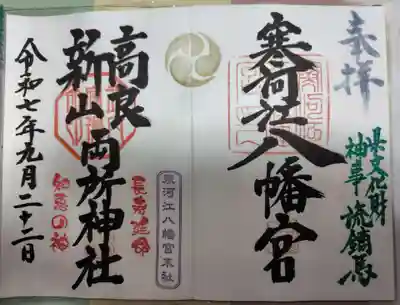 奉拝
県文化財
神事 流鏑馬
寒河江八幡宮
寒河江八幡宮末社
高良
新山 両所神社
長寿延命
知恵の神
令和七年九月二十二日